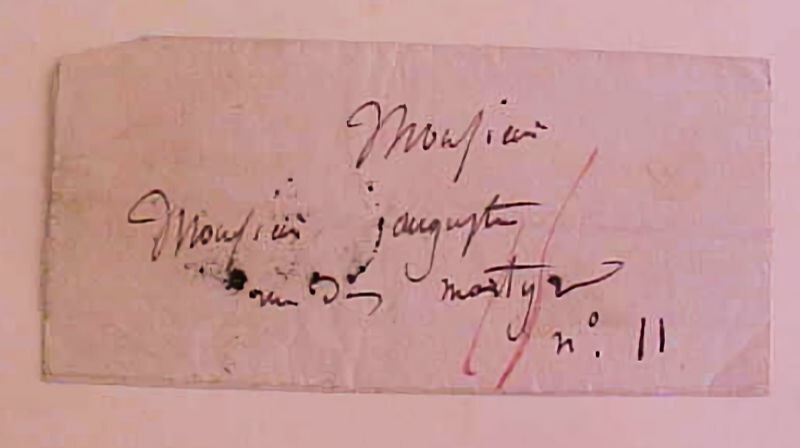 Monsieur
Monsieur auguste
rue des martyrs
n° 11